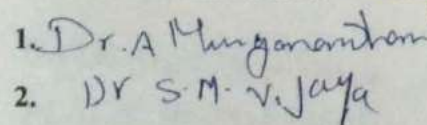 1. Dr. A Murganantham
2. Dr S.M. Vijaya